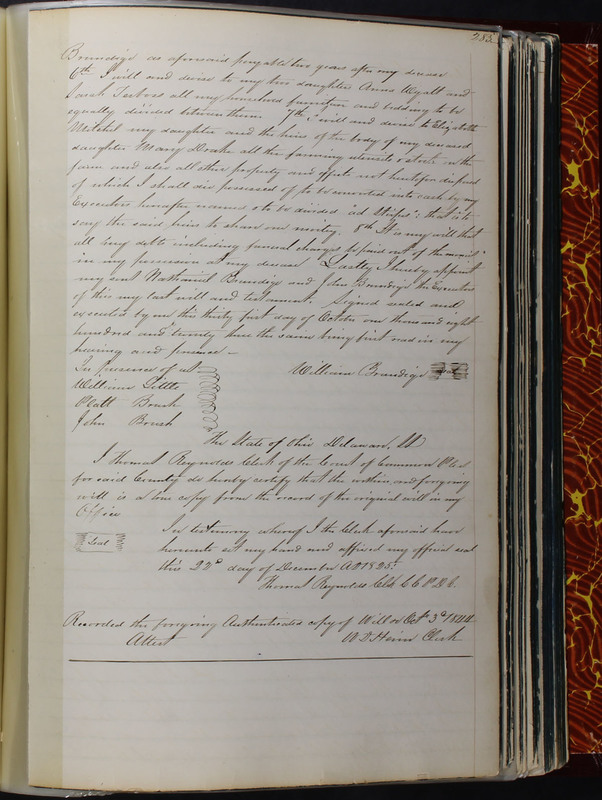 283
Brundige as aforesaid payable two years after my decease
6th I will and devise to my two daughters Anna Wyatt and
Sarah all my household furniture and bedding to be
equally divided between them 7th I will and devise to Elizabeth
Mitchel my daughter and the heirs of the body of my deceased
daughter Mary Drake all the farming utensils & stock on the
farm and also all other property and effects not heretofore disposed
of which I shall die possessed of to be converted into cash by my
Executors hereafter named & to be divided "ad stirpes" that is to
say the said heirs to share one moiety. 8th It is my will that
all my debts including funeral charges be paid out of the monies
in my possession at my decease Lastly I hereby appoint
my sons Nathaniel Brundige and John Brundige the Executors
of this my last will and testament. Signed sealed and
executed by me this thirty first day of October one thousand eight
hundred and twenty the same being first read in my
hearing and presence -
In presence of us William Brundige seal
William Little
Platt Brush
John Brush
The State of Ohio Delaware, SS
I Thomas Reynolds Clerk of the Court of Common Pleas
for said County do hereby certify that the within and foregoing
will is a true copy from the record of the original will in my
Office
In testimony whereof I the Clerk aforesaid have
Seal hereunto set my hand and affixed my official seal
this 22d day of December AD 1825.
Thomas Reynolds Clk C C P D C.
Recorded the foregoing Authenticated copy of Will on Oct 3d 1844
Attest W D Heim Clerk